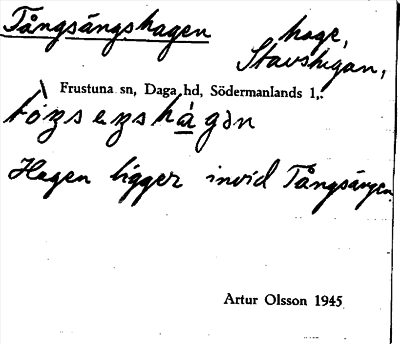 Tångsängshagen
hage,
Stavstugan,
Frustuna sn, Daga hd, Södermanlands l,.
Hagen ligger invid Tångsängen
Artur Olsson 1945